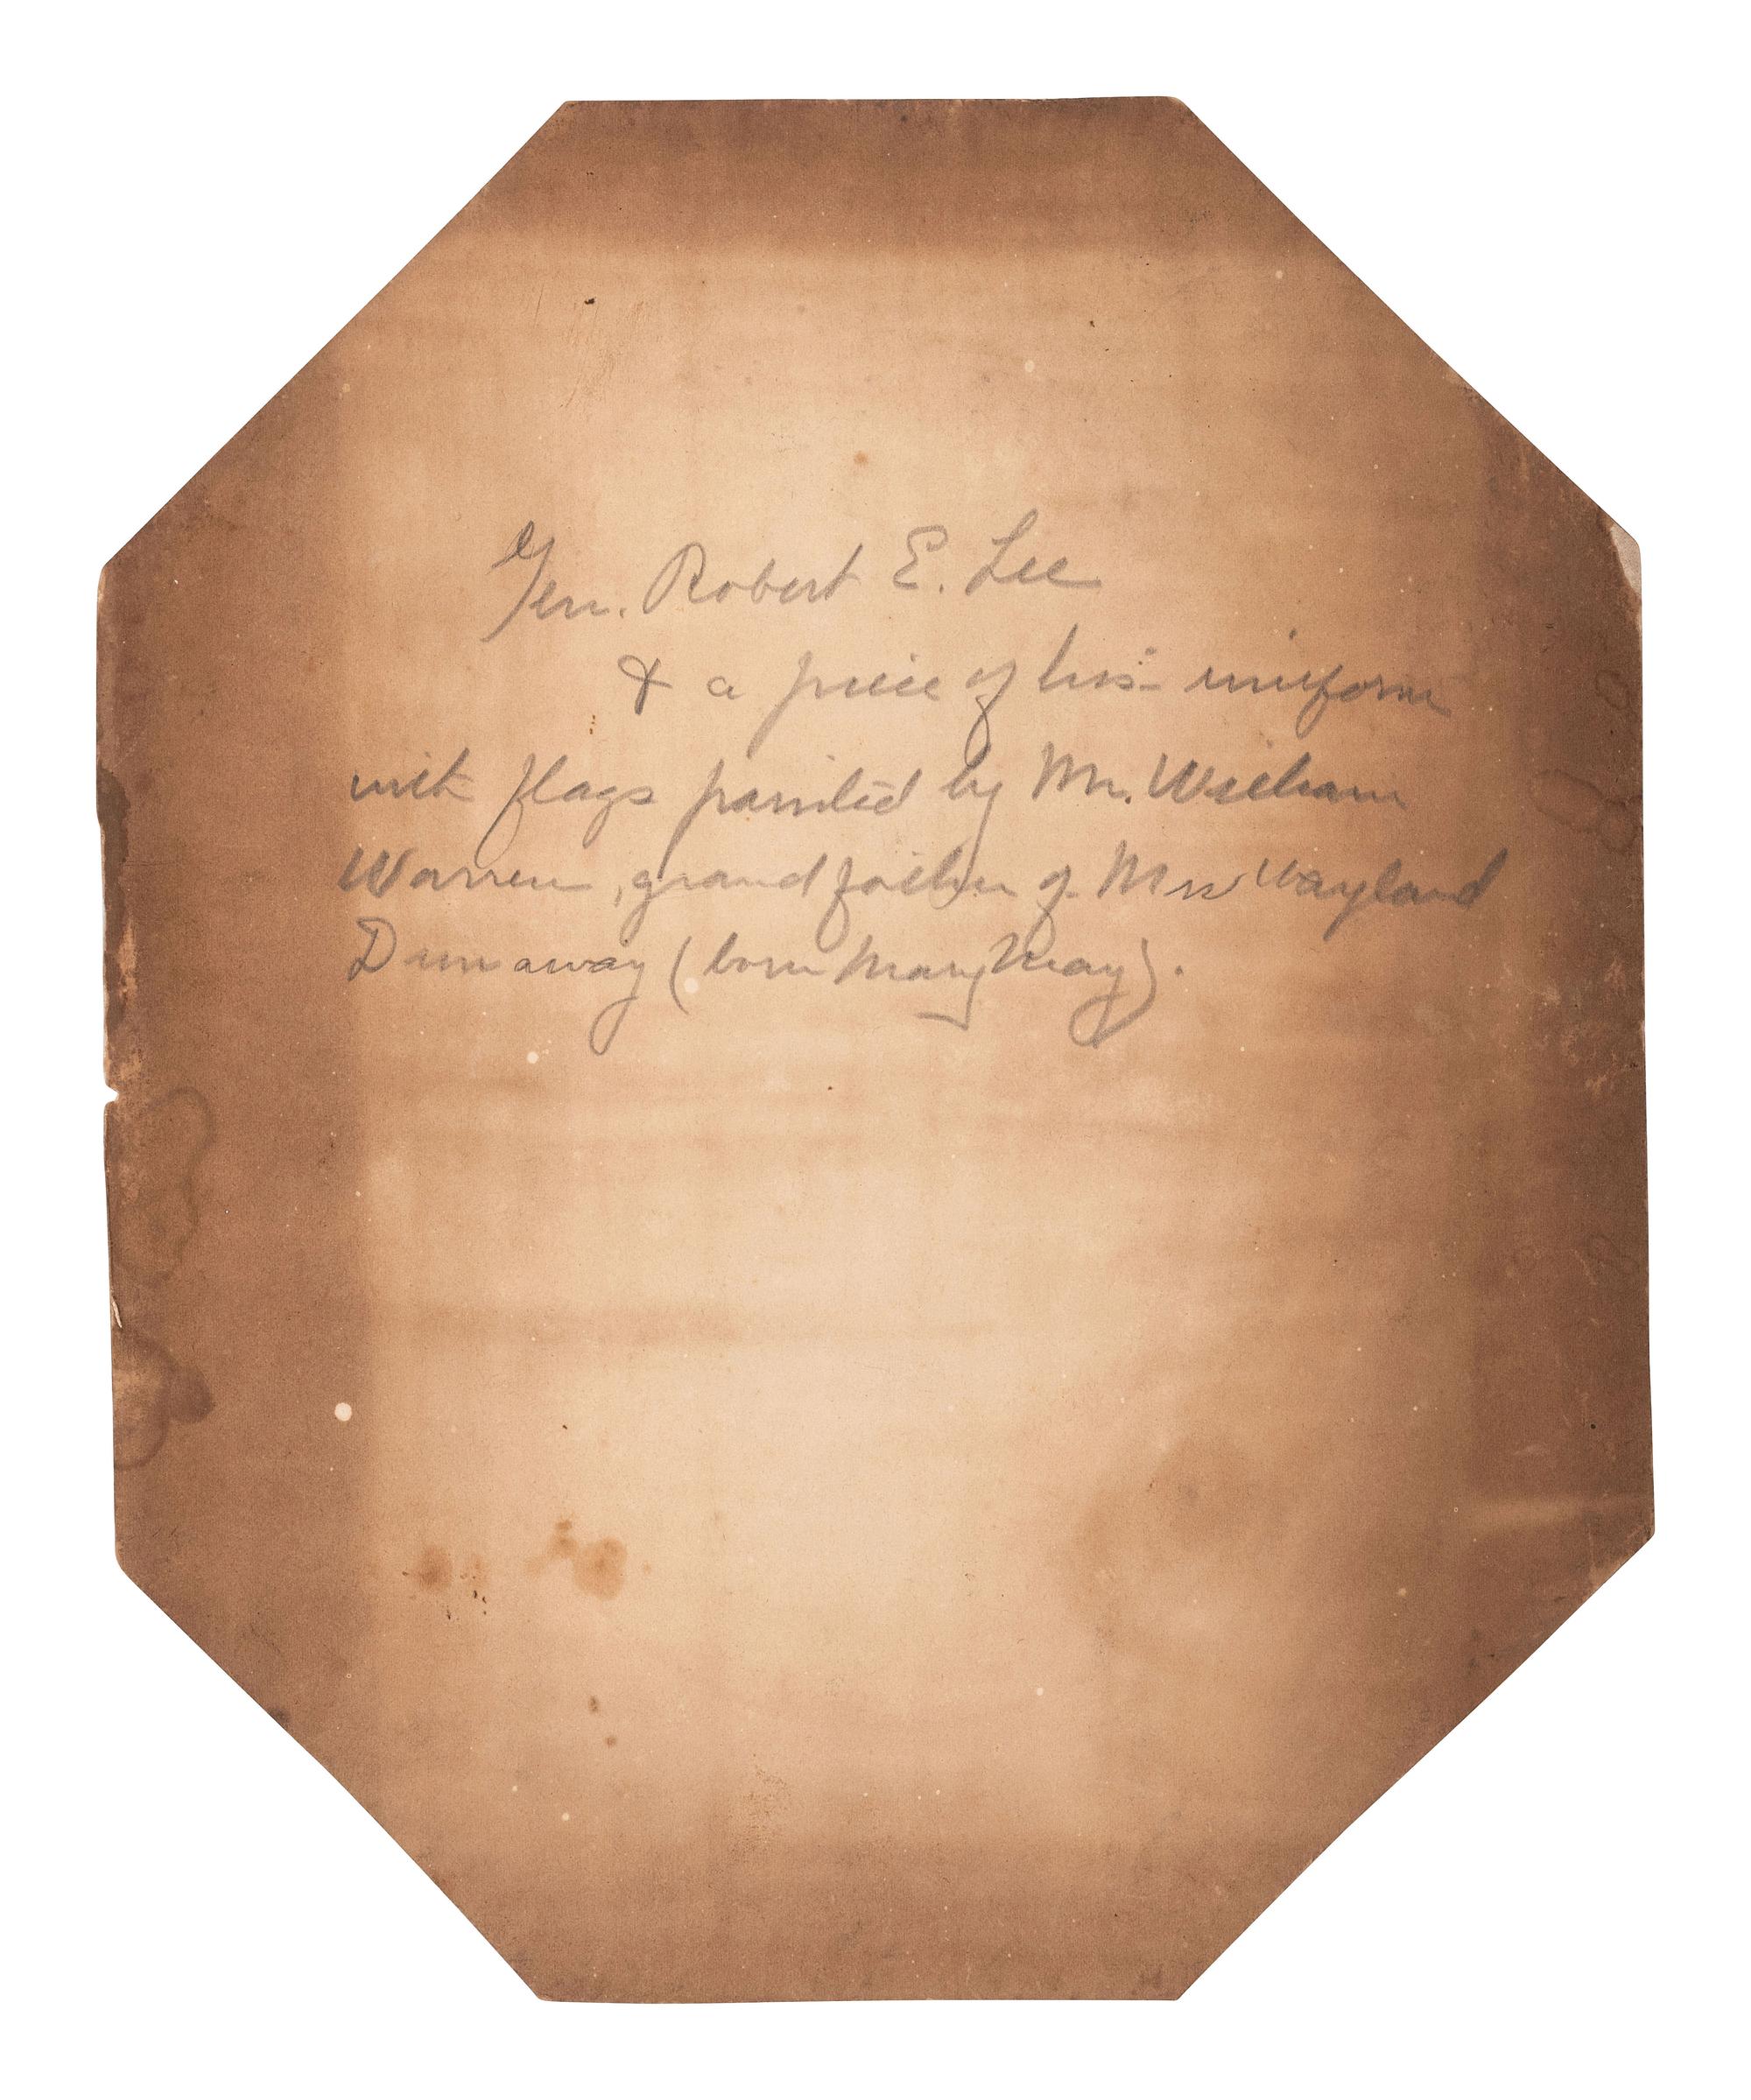 Gen. Robert E. Lee
& a piece of his uniform
with flags painted by Mr. William
Warren, grandfather of Mrs Wayland
Dunaway (born Mary May).